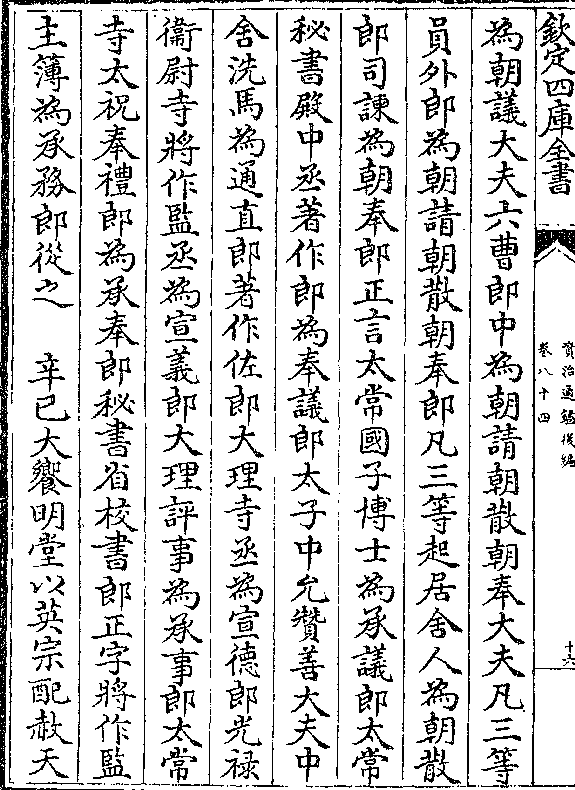 欽定四庫全書
資治通鑑後編
卷八十四
十六
為朝議大夫六曹郎中為朝請朝散朝奉大夫凡三等
員外郎為朝請朝散朝奉郎凡三等起居舍人為朝散
郎司諫為朝奉郎正言太常國子博士為承議郎太常
秘書殿中丞著作郎為奉議郎太子中允贊善大夫中
舍洗馬為通直郎著作佐郎大理寺丞為宣德郎光禄
衞尉寺將作監丞為宣義郎大理評事為承事郎太常
寺太祝奉禮郎為承奉郎秘書省校書郎正字將作監
主簿為承務郎從之　辛巳大饗明堂以英宗配赦天